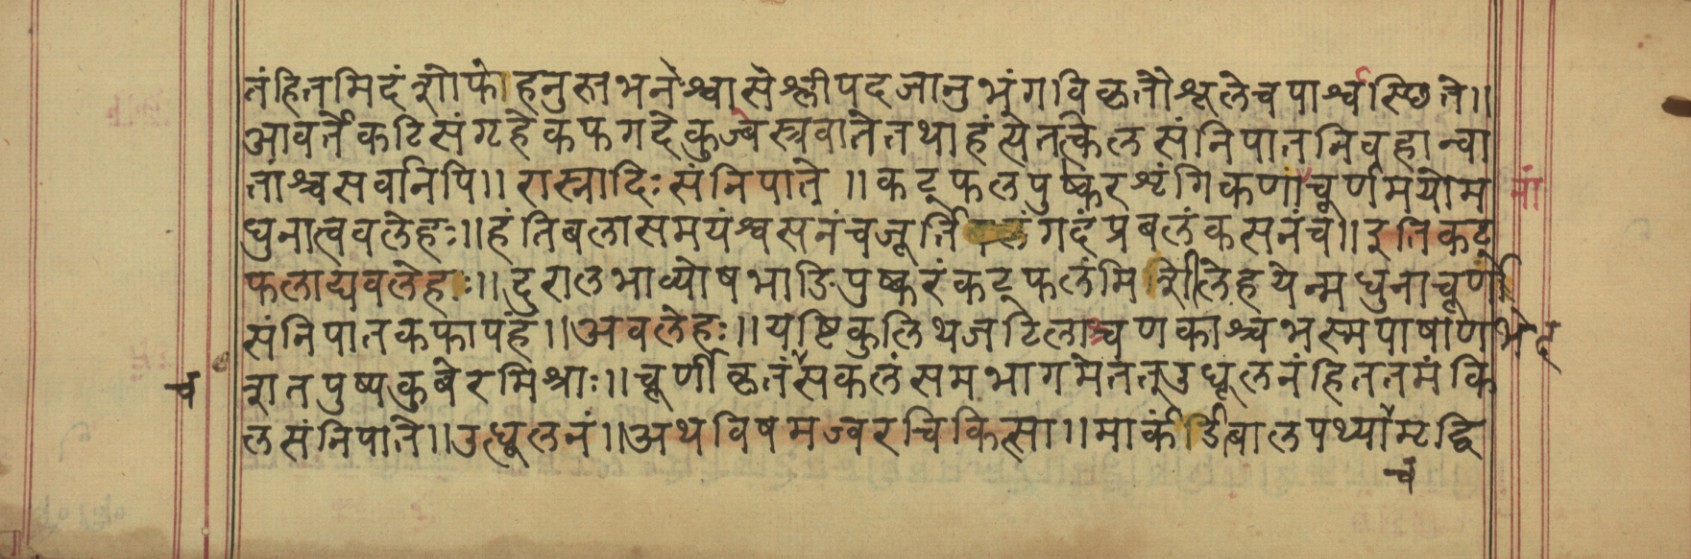 तंहितमिदं शोफे हनुस्तभने श्वासे श्लीपदजानुभंगविकृतौ श्रूलेच पार्श्वस्छिते॥
आवर्ते कटिसंग्रहे कफगदे कुज्वस्त्रवाते तथा हंत्येतत्केल संनिपातनिवहान्वा
ताश्च सर्वानपि॥ रास्नादिः संनिपाते॥ कट्फलपुष्करश्रृंगिकणाचूर्णमयोम
धुनात्ववलेहः॥ हंतिबलासमयंश्वसनंच जूर्ति गदंप्रबलंकसनंच॥ इतिकट्
फलाद्यवलेहः॥ दुरालभाव्योषभाङिपुष्करंकट्फलंमि लेहयेन्मधुनाचूर्ण
संनिपातकफापहं॥ अवलेहः॥ यष्टिकुलिथजटिलाचणकाश्च भस्मपाषाणभेद
शतपुष्पकुबेरमिश्राः॥ चूर्णीकृतं सकलं समभागमेतत् उधूलनं हिततमं कि
च
लसंनिपाते॥ उत्धूलनं॥ अथविषमज्वरचिकित्सा॥ मार्कंडिबालपथ्या द्वि
चं
नां